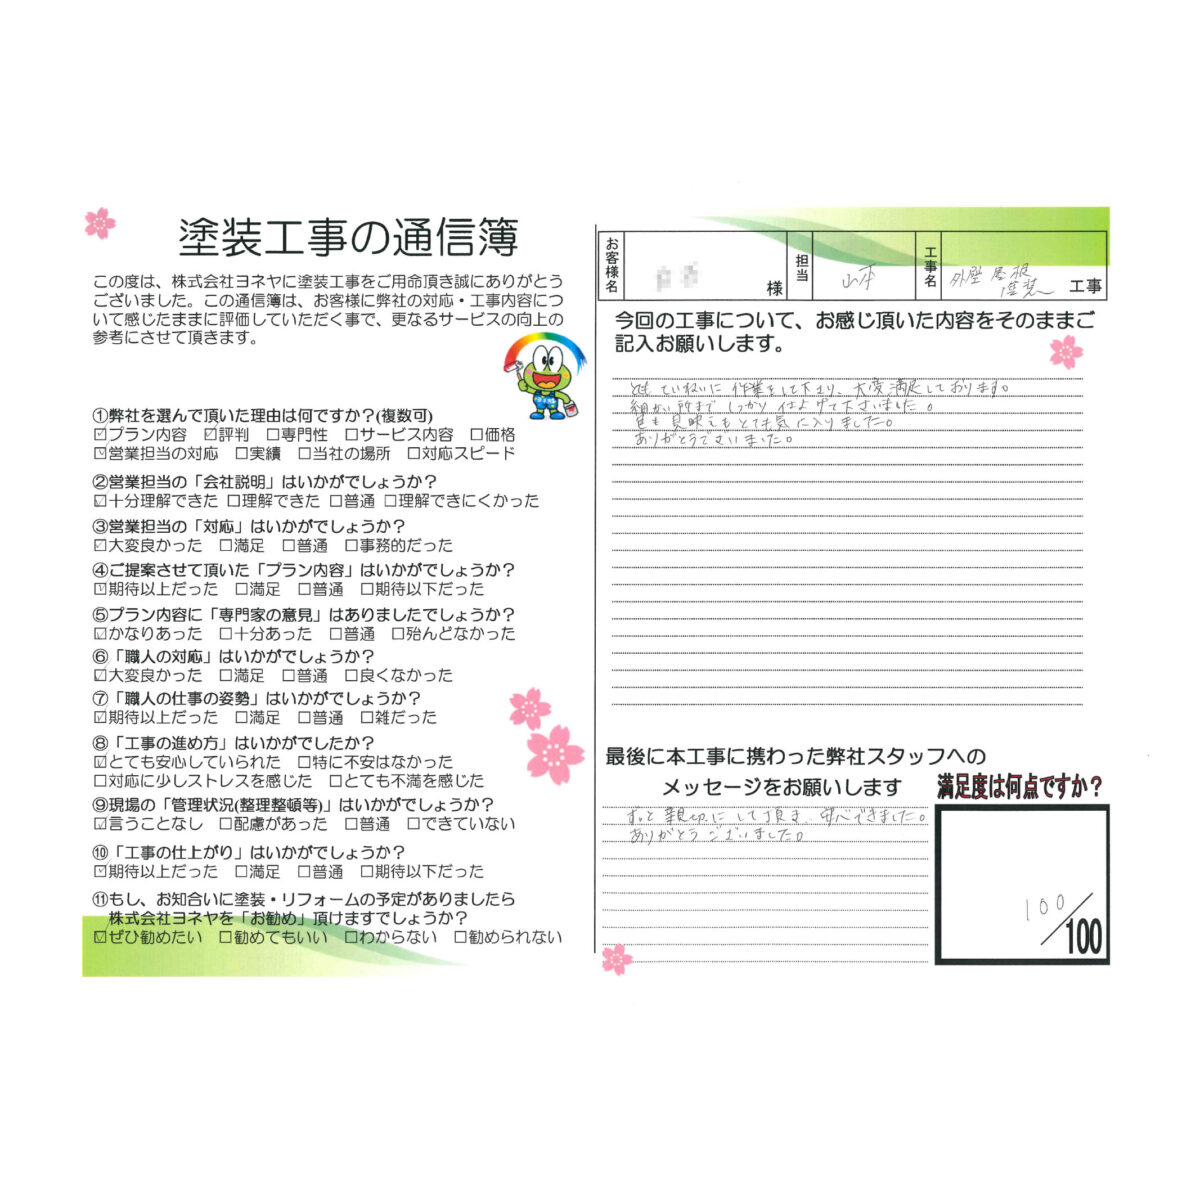 塗装工事の通信簿
この度は、株式会社ヨネヤに塗装工事をご用命頂き誠にありがとう
ございました。この通信簿は、お客様に弊社の対応・工事内容につ
いて感じたままに評価していただく事で、更なるサービスの向上の
参考にさせて頂きます。
①弊社を選んで頂いた理由は何ですか?(複数可)
☑プラン内容 ☑評判 □専門性 □サービス内容 □価格
☑営業担当の対応 □実績 □当社の場所 □対応スピード
②営業担当の「会社説明」はいかがでしょうか?
☑十分理解できた □理解できた □普通 □理解できにくかった
③営業担当の「対応」はいかがでしょうか?
☑大変良かった □満足 □普通 □事務的だった
④ご提案させて頂いた「プラン内容」はいかがでしょうか?
☑期待以上だった □満足 □普通 □期待以下だった
⑤プラン内容に「専門家の意見」はありましたでしょうか?
☑かなりあった □十分あった □普通 □殆んどなかった
⑥「職人の対応」はいかがでしょうか?
☑大変良かった □満足 □普通 □良くなかった
⑦「職人の仕事の姿勢」はいかがでしょうか?
☑期待以上だった □満足 □普通 □雑だった
⑧「工事の進め方」はいかがでしたか?
☑とても安心していられた □特に不安はなかった
□対応に少しストレスを感じた □とても不満を感じた
⑨現場の「管理状況(整理整頓等)」はいかがでしょうか?
☑言うことなし □配慮があった □普通 □できていない
⑩「工事の仕上がり」はいかがでしょうか?
☑期待以上だった □満足 □普通 □期待以下だった
⑪もし、お知合いに塗装・リフォームの予定がありましたら
株式会社ヨネヤを「お勧め」頂けますでしょうか?
☑ぜひ勧めたい □勧めてもいい □わからない □勧められない
お客様名 様 担当 山本 工事名 外壁 屋根 塗装 工事
今回の工事について、お感じ頂いた内容をそのままご
記入お願いします。
とても ていねいに 作業をして下さり、大変満足しております。
細かい所まで しっかり 仕上げて下さいました。
色も 見映えも とても気に入りました。
ありがとうございました。
最後に本工事に携わった弊社スタッフへの
メッセージをお願いします
ずっと 親切に して頂き 安心できました。
ありがとう ございました。
満足度は何点ですか?
100/100